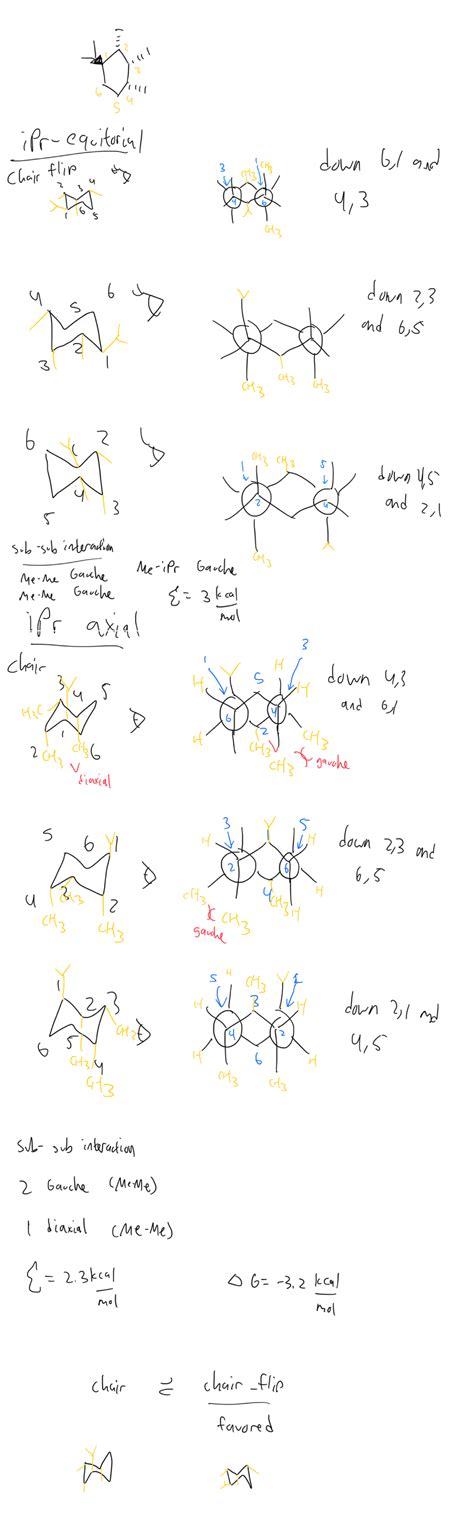 2
3
4
5
6
iPr-equitorial
Chair flip
2 3 4
1 6 5
3 1
CH3
4 6
CH3
down 6,1 and
4,3
4 5 6
3 2 1
CH3 CH3
down 2,3
and 6,5
6 1 2
5 4 3
CH3 CH3
1 5
2 4
CH3
down 4,5
and 2,1
sub-sub interaction
Me-Me Gauche
Me-Me Gauche
Me-iPr Gauche
Σ = 3 kcal
mol
iPr axial
chair
3 4 5
H3C
2 1 6
CH3 CH3
diaxial
1 3
H H H
5
6 4
H 2
CH3 CH3
CH3
gauche
down 4,3
and 6,1
5 6 1
4 3 2
CH3 CH3
CH3
3 5
H H
2 6
H H
4
CH3 CH3 H
CH3
gauche
down 2,3 and
6,5
1 2 3
6 5 4
CH3 CH3
CH3
5 H CH3 1
H 3 H
4 2
H 6 H
CH3 CH3
down 2,1 and
4,5
sub-sub interaction
2 Gauche (Me-Me)
1 diaxial (Me-Me)
Σ = 2.3 kcal
mol
Δ G = -3.2 kcal
mol
chair ⇌ chair-flip
favored